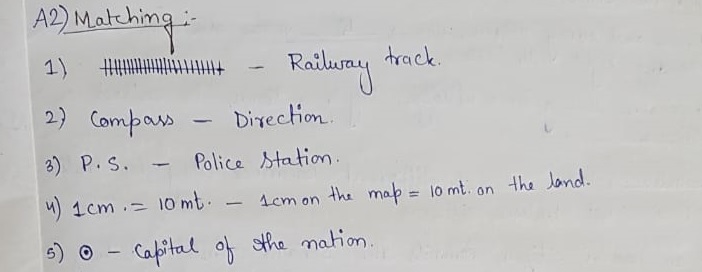 A2) Matching :-
1) - Railway track.
2) Compass - Direction.
3) P.S. - Police Station.
4) 1cm .= 10mt. - 1cm on the map = 10mt. on the land.
5) ⊙ - Capital of the nation.